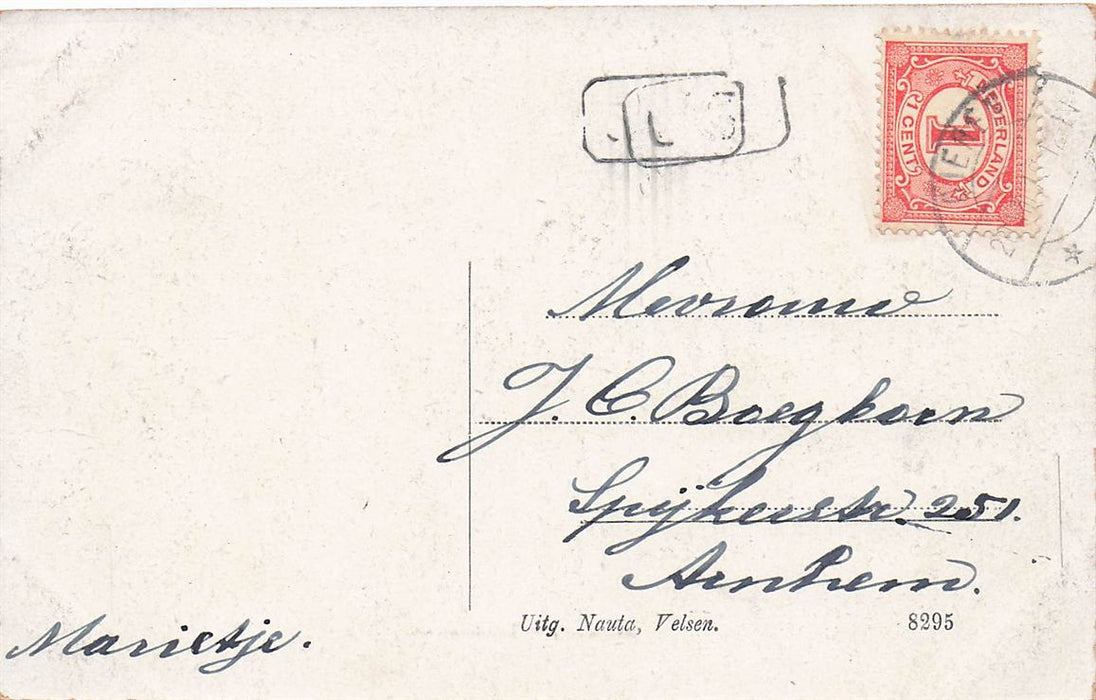 NEDERLAND
1 CENT
1
Mevrouw
J. C. Boegkorn
Spijkerstr. 251.
Arnhem.
Marietje.
Uitg. Nauta, Velsen.
8295